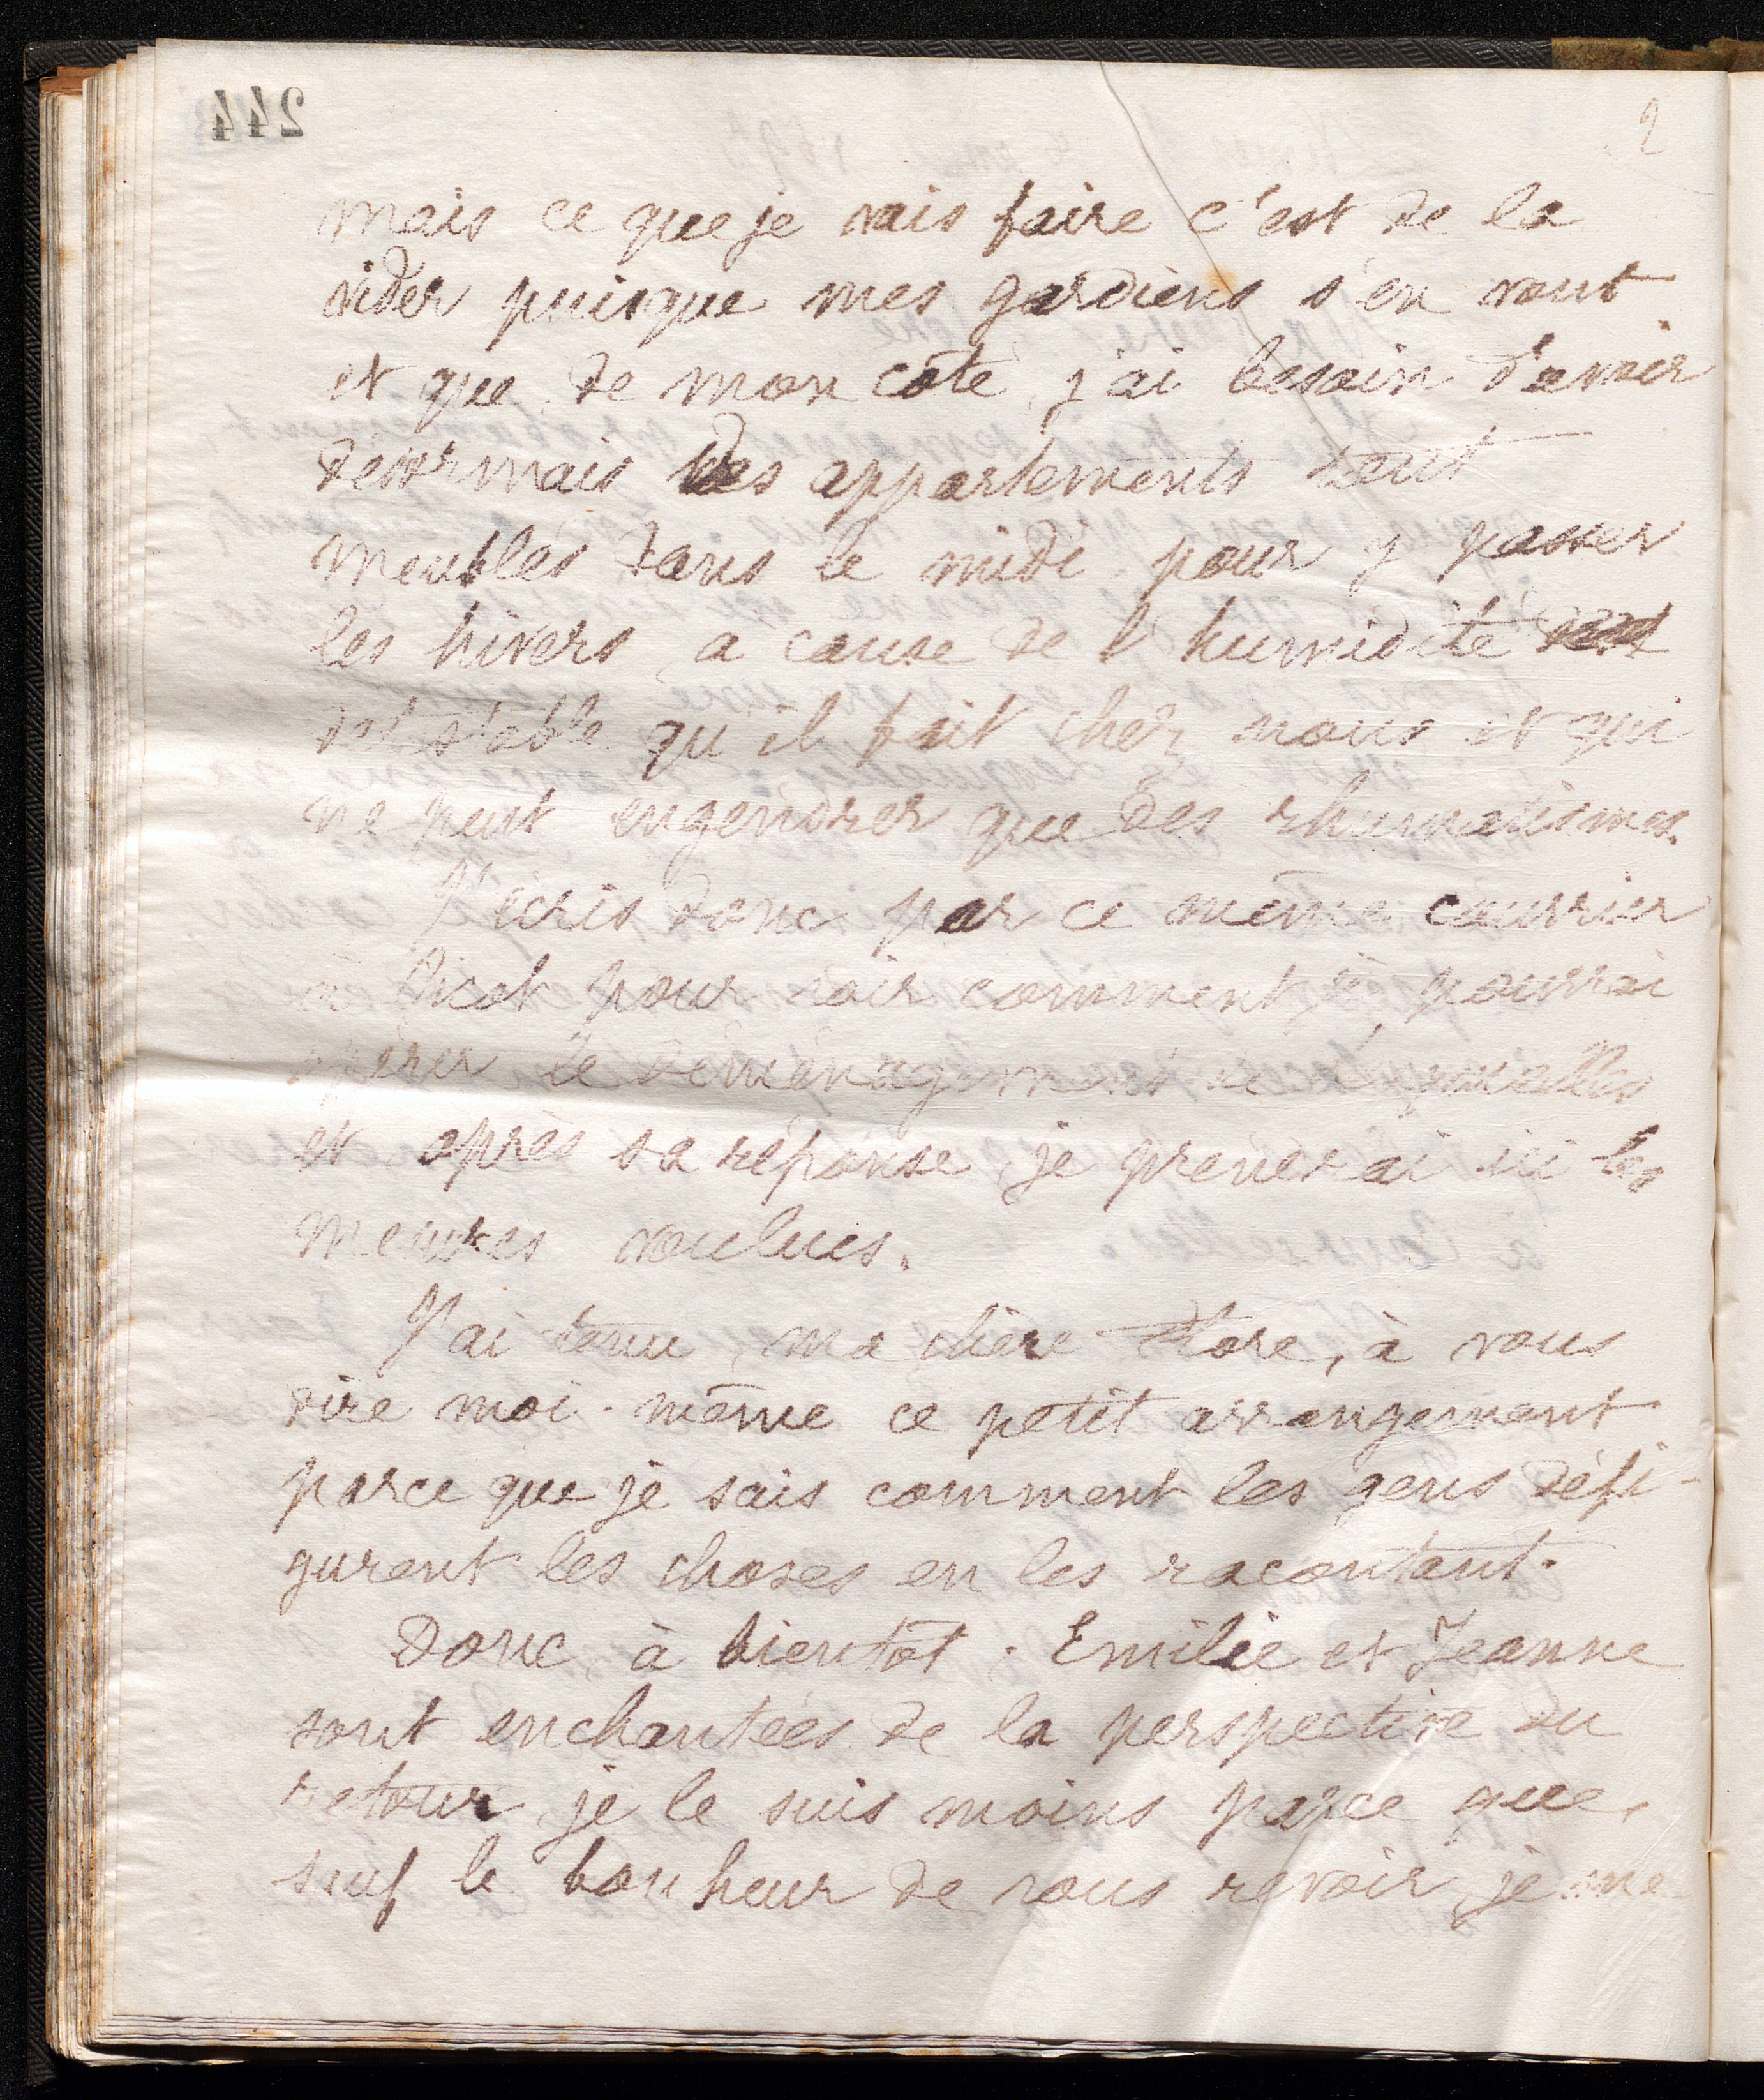 244
2
mais ce que je vais faire c'est de la
vider puisque mes gardiens s'en vont
et que de mon coté, j'ai besoin d'avoir
désormais des appartements tout
meublés dans le midi pour y passer
les hivers, a cause de l'humidité
detestable qu'il fait chez nous et qui
ne peut engendrer que des rhumatismes.
J'écris donc par ce même courrier
à Picot pour voir comment je pourrai
opérer le déménagement de
et après sa réponse, je prendrai ici les
mesures voulues.
J'ai tenu, ma chère Flore, à vous
dire moi-même ce petit arrangement
parce que je sais comment les gens défi-
gurent les choses en les racontant.
Donc, à bientôt. Emilie et Jeanne
sont enchantées de la perspective du
retour, je le suis moins parce que,
sauf le bonheur de vous revoir, je me